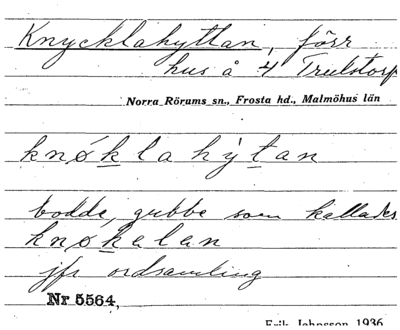 Knycklahyttan, förr
hus å 4 Trulstorp
Norra Rörums sn., Frosta hd., Malmöhus län
knǿklahýtan
bodde, gubbe som kallades
knøkalan
jfr ordsamling
Nr 5564,
Erik Johnsson 1936